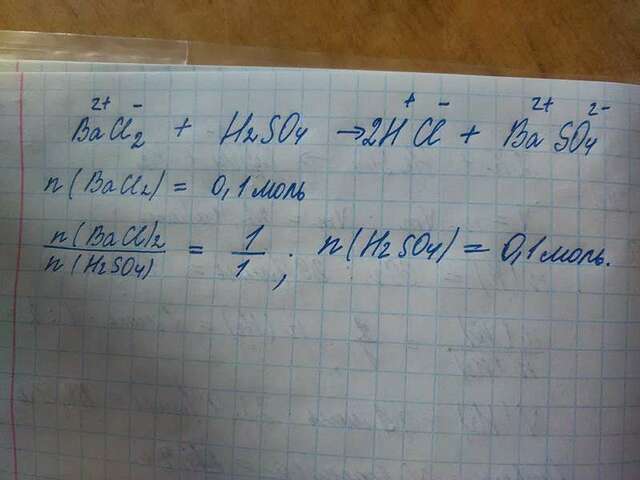 Ba²⁺Cl⁻₂ + H₂SO₄ → 2H⁺Cl⁻ + Ba²⁺SO₄²⁻
n(BaCl₂) = 0,1 моль
n(BaCl)₂ / n(H₂SO₄) = 1/1 ; n(H₂SO₄) = 0,1 моль.